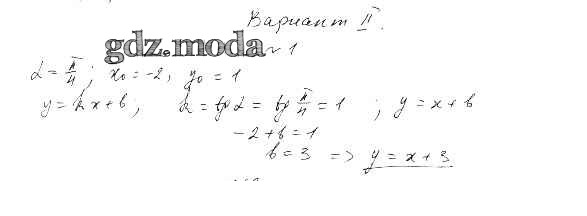 Вариант II.
gdz.moda ~ 1
α = π/4 ; x₀ = -2, y₀ = 1
y = kx + b ; k = tg α = tg π/4 = 1 ; y = x + b
-2 + b = 1
b = 3 => y = x + 3